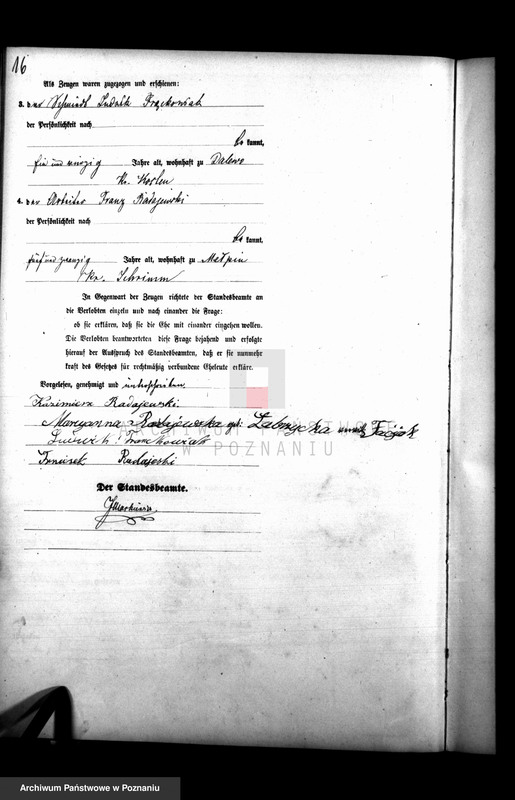 16
Als Zeugen waren zugezogen und erschienen:
3. der Schmied Ludwik Frąckowiak
der Persönlichkeit nach
be kannt,
vierzig Jahre alt, wohnhaft zu Dalewo
Kr. Kosten
4. der Arbeiter Franz Radajewski
der Persönlichkeit nach
be kannt,
fünf und zwanzig Jahre alt, wohnhaft zu Mełpin
Kr. Schrimm
In Gegenwart der Zeugen richtete der Standesbeamte an
die Verlobten einzeln und nach einander die Frage:
ob sie erklären, daß sie die Ehe mit einander eingehen wollen.
Die Verlobten beantworteten diese Frage bejahend und erfolgte
hierauf der Ausspruch des Standesbeamten, daß er sie nunmehr
kraft des Gesetzes für rechtmäßig verbundene Eheleute erkläre.
Vorgelesen, genehmigt und unterschrieben
Kazimierz Radajewski
Maryanna Radajewska
Ludwik Frąckowiak
Radajeski
Der Standesbeamte.
ARCHIWUM PAŃSTWOWE
W POZNANIU
Archiwum Państwowe w Poznaniu